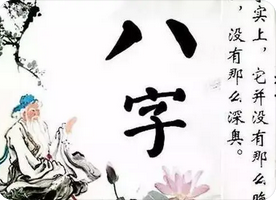 八字
实上，它并没有那么晦
，没有那么深奥。